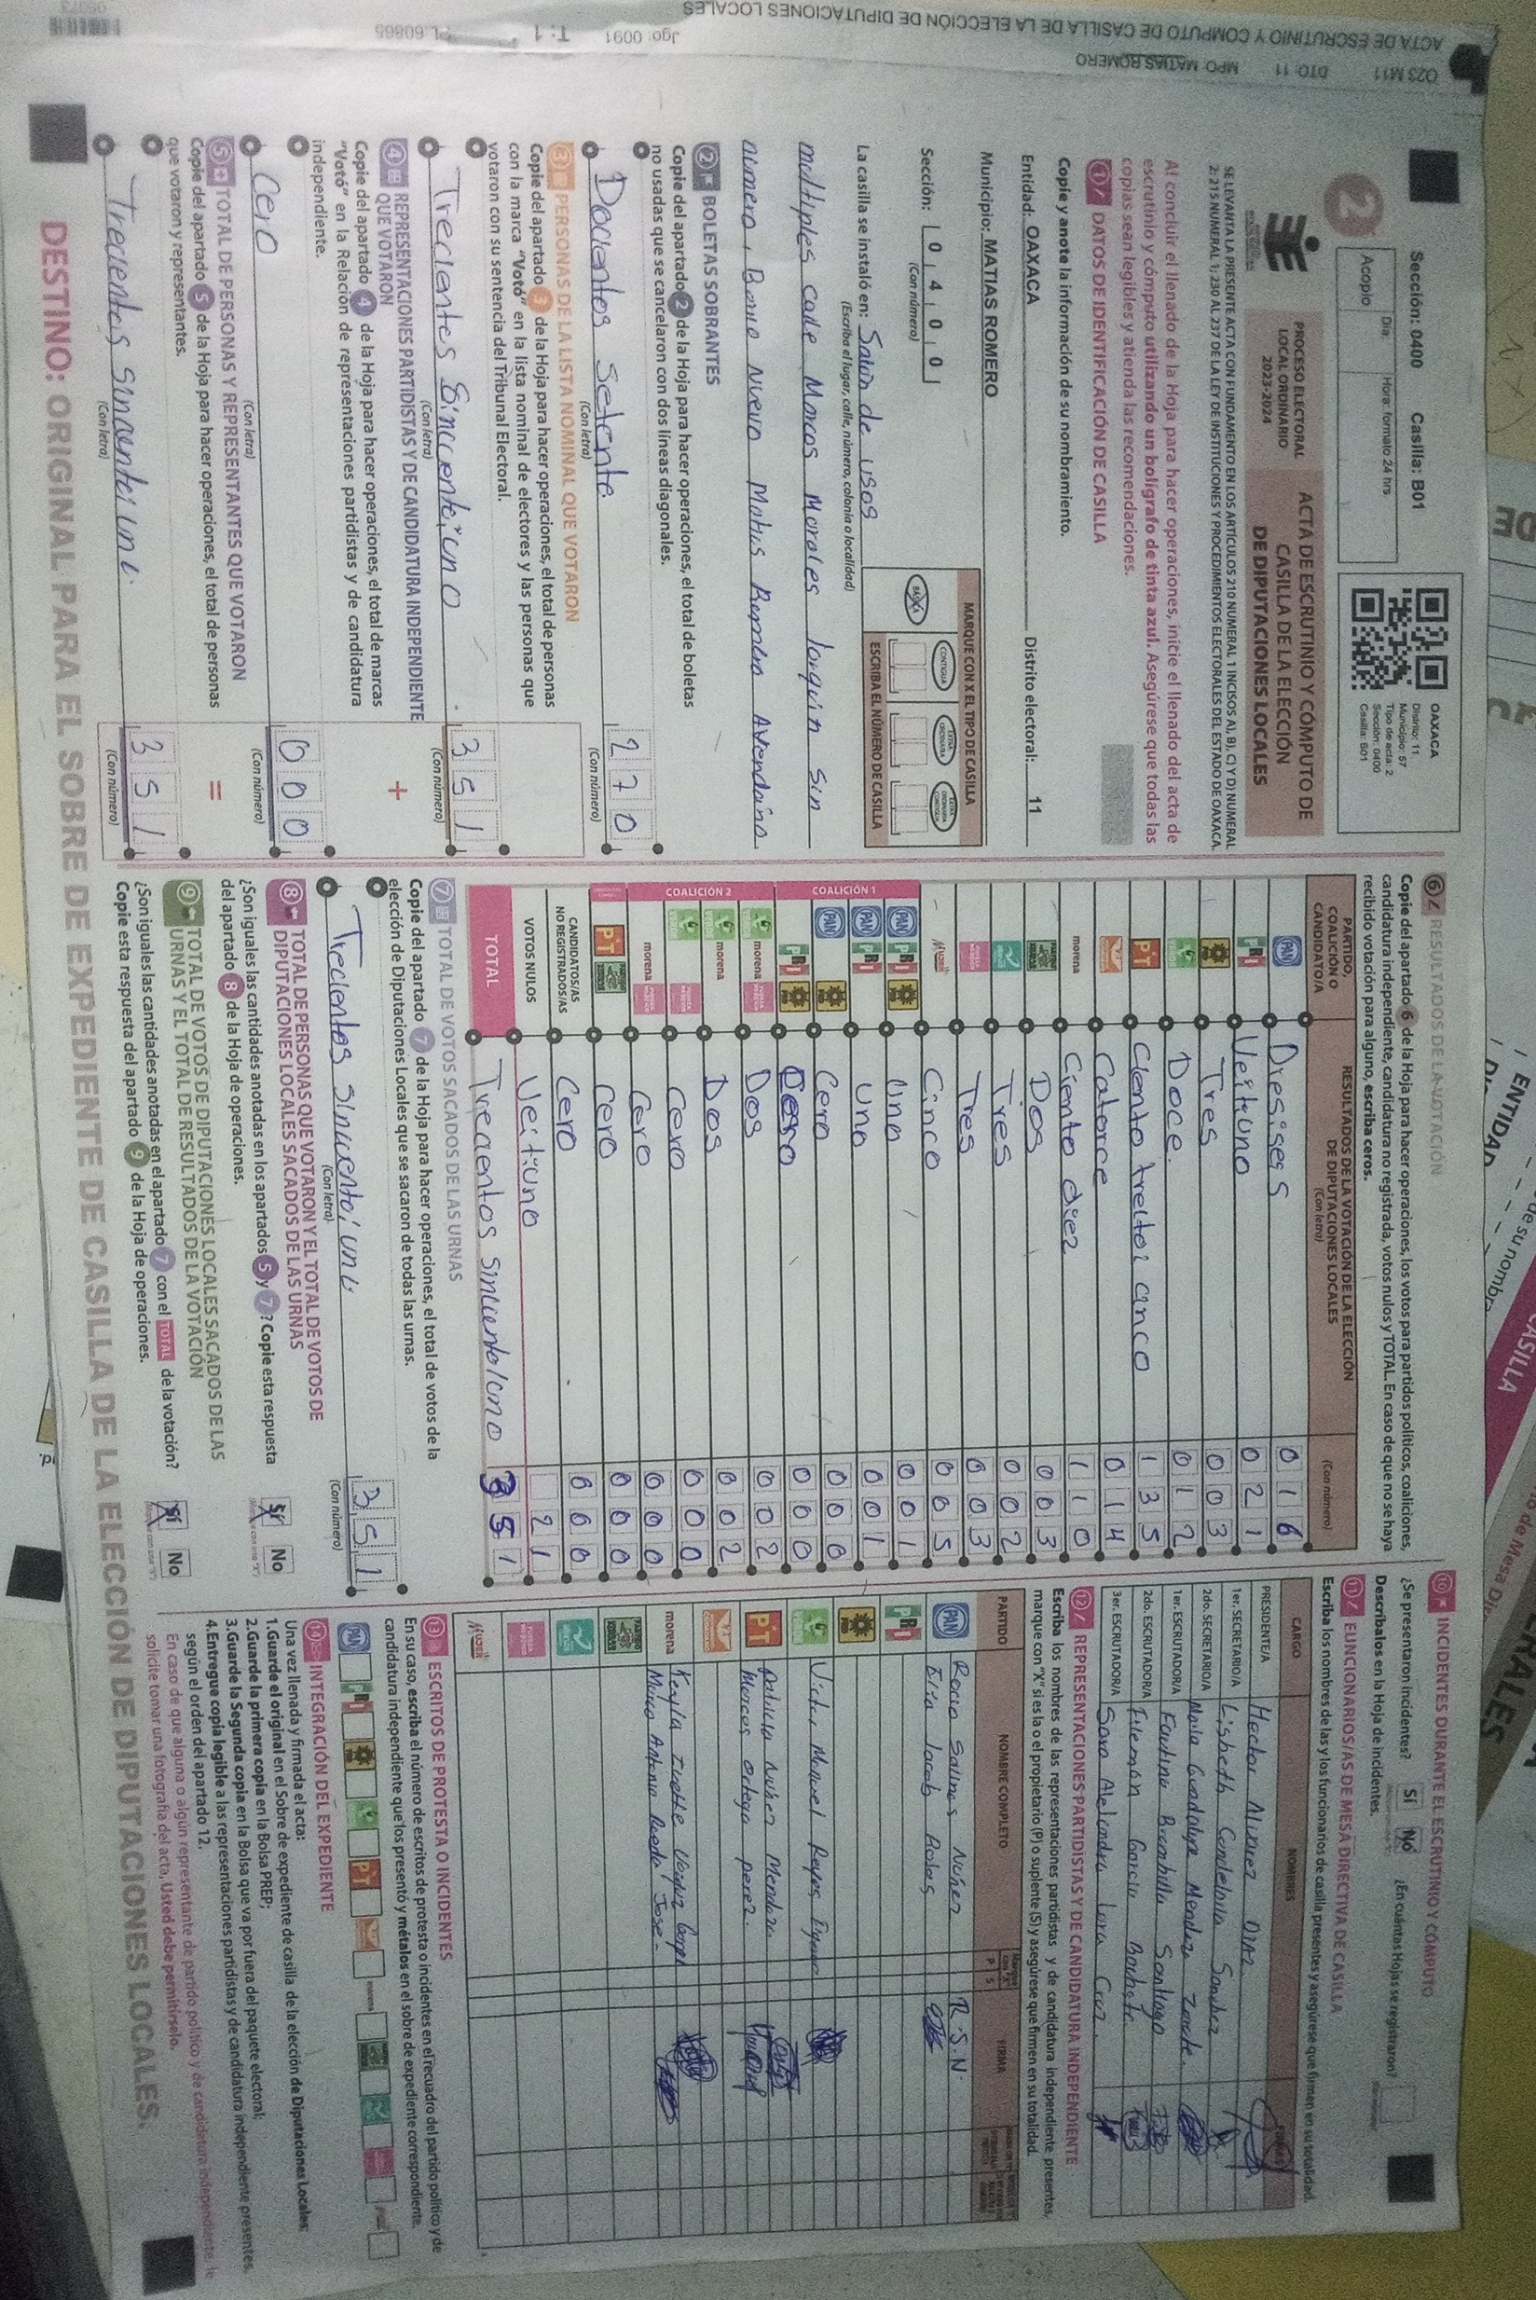 Sección: 0400 Casilla: B01
Día: Hora: formato 24 hrs
Acopio
OAXACA
Distrito: 11
Municipio: 57
Tipo de acta: 2
Sección: 0400
Casilla: B01
2
PROCESO ELECTORAL
LOCAL ORDINARIO
2023-2024
ACTA DE ESCRUTINIO Y CÓMPUTO DE
CASILLA DE LA ELECCIÓN
DE DIPUTACIONES LOCALES
SE LEVANTA LA PRESENTE ACTA CON FUNDAMENTO EN LOS ARTÍCULOS 210 NUMERAL 1 INCISOS A), B), C) Y D) NUMERAL
2; 215 NUMERAL 1; 230 AL 237 DE LA LEY DE INSTITUCIONES Y PROCEDIMIENTOS ELECTORALES DEL ESTADO DE OAXACA.
Al concluir el llenado de la Hoja para hacer operaciones, inicie el llenado del acta de
escrutinio y cómputo utilizando un bolígrafo de tinta azul. Asegúrese que todas las
copias sean legibles y atienda las recomendaciones.
1 DATOS DE IDENTIFICACIÓN DE CASILLA
Copie y anote la información de su nombramiento.
Entidad: OAXACA Distrito electoral: 11
Municipio: MATIAS ROMERO
Sección: 0 4 0 0
(Con número)
MARQUE CON X EL TIPO DE CASILLA
BÁSICA CONTIGUA EXTRAORDINARIA EXTRAORDINARIA CONTIGUA
ESCRIBA EL NÚMERO DE CASILLA
La casilla se instaló en: Salón de usos
(Escriba el lugar, calle, número, colonia o localidad)
multiples, calle Marcos Morales Joaquin sin
número, Barrio Nuevo Matias Romero Avendaño
2 BOLETAS SOBRANTES
Copie del apartado 2 de la Hoja para hacer operaciones, el total de boletas
no usadas que se cancelaron con dos líneas diagonales.
Docientos setente 2 7 0
(Con letra) (Con número)
3 PERSONAS DE LA LISTA NOMINAL QUE VOTARON
Copie del apartado 3 de la Hoja para hacer operaciones, el total de personas
con la marca "Votó" en la lista nominal de electores y las personas que
votaron con su sentencia del Tribunal Electoral.
Trecientes Sincuente, uno 3 5 1
(Con letra) (Con número)
4 REPRESENTACIONES PARTIDISTAS Y DE CANDIDATURA INDEPENDIENTE
QUE VOTARON
Copie del apartado 4 de la Hoja para hacer operaciones, el total de marcas
"Votó" en la Relación de representaciones partidistas y de candidatura
independiente.
+
Cero 0 0 0
(Con letra) (Con número)
5 TOTAL DE PERSONAS Y REPRESENTANTES QUE VOTARON
Copie del apartado 5 de la Hoja para hacer operaciones, el total de personas
que votaron y representantes.
=
3 5 1
(Con letra) (Con número)
6 RESULTADOS DE LA VOTACIÓN
Copie del apartado 6 de la Hoja para hacer operaciones, los votos para partidos políticos, coaliciones,
candidatura independiente, candidatura no registrada, votos nulos y TOTAL. En caso de que no se haya
recibido votación para alguno, escriba ceros.
PARTIDO,
COALICIÓN O
CANDIDATO/A
RESULTADOS DE LA VOTACIÓN DE LA ELECCIÓN
DE DIPUTACIONES LOCALES
(Con letra) (Con número)
PAN Dieciseis 0 1 6
PRI Veituno 0 2 1
PRD Tres 0 0 3
VERDE Doce. 0 1 2
PT Ciento treitoi cinco 1 3 5
Catorce 0 1 4
morena Ciento diez 1 1 0
Dos 0 0 3
Tres 0 0 2
Tres 0 0 3
MUJER Cinco 0 0 5
COALICIÓN 1
PAN PRI PRD Uno 0 0 1
PAN PRI Uno 0 0 1
PAN PRD Cero 0 0 0
PRI PRD Cero 0 0 0
COALICIÓN 2
VERDE morena FUERZA MÉXICO Dos 0 0 2
VERDE morena Dos 0 0 2
VERDE FUERZA MÉXICO Cero 0 0 0
morena FUERZA MÉXICO Cero 0 0 0
PT Cero 0 0 0
CANDIDATOS/AS
NO REGISTRADOS/AS Cero 0 0 0
VOTOS NULOS Veitiuno 2 1
TOTAL 3 5 1
7 TOTAL DE VOTOS SACADOS DE LAS URNAS
Copie del apartado 7 de la Hoja para hacer operaciones, el total de votos de la
elección de Diputaciones Locales que se sacaron de todas las urnas.
3 5 1
(Con letra) (Con número)
8 TOTAL DE PERSONAS QUE VOTARON Y EL TOTAL DE VOTOS DE
DIPUTACIONES LOCALES SACADOS DE LAS URNAS
¿Son iguales las cantidades anotadas en los apartados 5 y 7? Copie esta respuesta
del apartado 8 de la Hoja de operaciones.
Sí No
9 TOTAL DE VOTOS DE DIPUTACIONES LOCALES SACADOS DE LAS
URNAS Y EL TOTAL DE RESULTADOS DE LA VOTACIÓN
¿Son iguales las cantidades anotadas en el apartado 7 con el TOTAL de la votación?
Copie esta respuesta del apartado 9 de la Hoja de operaciones.
Sí No
10 INCIDENTES DURANTE EL ESCRUTINIO Y CÓMPUTO
¿Se presentaron incidentes? Sí No ¿En cuántas Hojas se registraron?
Descríbalos en la Hoja de incidentes.
11 FUNCIONARIOS/AS DE MESA DIRECTIVA DE CASILLA
Escriba los nombres de las y los funcionarios de casilla presentes y asegúrese que firmen en su totalidad.
CARGO NOMBRES FIRMAS
PRESIDENTE/A Hector Alvarez Diaz
1er. SECRETARIO/A Lisbeth Candelaria Sanchez
2do. SECRETARIO/A Maria Guadalupe Mendoza Zarate.
1er. ESCRUTADOR/A Faustino Santiago
2do. ESCRUTADOR/A Filemón Garcia
3er. ESCRUTADOR/A Sara Alejandra Luna Cruz.
12 REPRESENTACIONES PARTIDISTAS Y DE CANDIDATURA INDEPENDIENTE
Escriba los nombres de las representaciones partidistas y de candidatura independiente presentes,
marque con "X" si es la o el propietario (P) o suplente (S) y asegúrese que firmen en su totalidad.
PARTIDO NOMBRE COMPLETO P S FIRMA
PAN Rocio Salinas Nuñez R.S.N.
Elia Jacob Rojas
PRI
PRD
VERDE Victor Manuel Reyes
PT Patricia Nuñez Mendoza
Marcos ortega perez.
morena Keyla Ivette
Marco Antonio Jose
MUJER
13 ESCRITOS DE PROTESTA O INCIDENTES
En su caso, escriba el número de escritos de protesta o incidentes en el recuadro del partido político y de
candidatura independiente que los presentó y métalos en el sobre de expediente correspondiente.
PAN PRI PRD VERDE PT morena
14 INTEGRACIÓN DEL EXPEDIENTE
Una vez llenada y firmada el acta:
1.Guarde el original en el Sobre de expediente de casilla de la elección de Diputaciones Locales;
2.Guarde la primera copia en la Bolsa PREP;
3.Guarde la Segunda copia en la Bolsa que va por fuera del paquete electoral;
4.Entregue copia legible a las representaciones partidistas y de candidatura independiente presentes,
según el orden del apartado 12.
En caso de que alguna o algún representante de partido político y de candidatura independiente, le
solicite tomar una fotografía del acta, Usted debe permitírselo.
DESTINO: ORIGINAL PARA EL SOBRE DE EXPEDIENTE DE CASILLA DE LA ELECCIÓN DE DIPUTACIONES LOCALES.
023 M11 DTO: 11 MPO: MATIAS ROMERO
ACTA DE ESCRUTINIO Y COMPUTO DE CASILLA DE LA ELECCIÓN DE DIPUTACIONES LOCALES
Jgo: 0091 T: 1 PL 60865
ENTIDAD
CASILLA